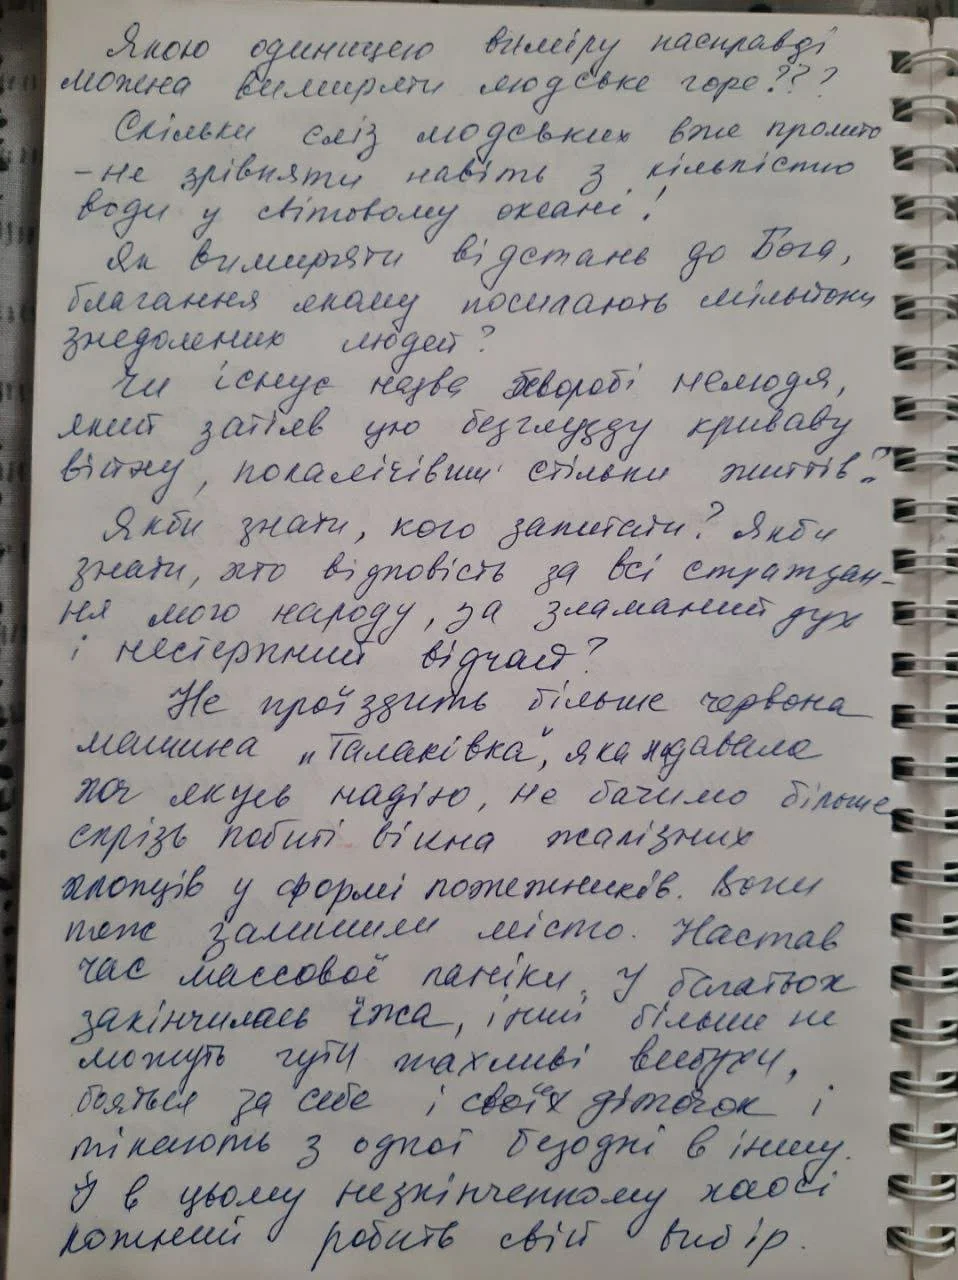 Якою одиницею виміру насправді
можна виміряти людське горе???
Скільки сліз людських вже пролито
- не зрівняти навіть з кількістю
води у світовому океані!
Як виміряти відстань до Бога,
благання якому посилають мільйони
знедолених людей?
Чи існує назва хворобі нелюдя,
який затіяв цю безглузду криваву
війну, покалічівши стільки життів?
Якби знати, кого запитати? Якби
знати, хто відповість за всі страждан-
ня мого народу, за зламаний дух
і нестерпний відчай?
Не проїздить більше червона
машина „Талаківка", яка подавала
хоч якусь надію, не бачимо більше
скрізь побиті вікна жалізних
хлопців у формі пожежників. Вони
теж залишили місто. Настав
час массової паніки. У багатьох
закінчилась їжа, інші більше не
можуть чути жахливі вибухи,
бояться за себе і своїх діточок і
тікають з одної безодні в іншу.
У в цьому незкінченному хаосі
кожний робить свій вибір.